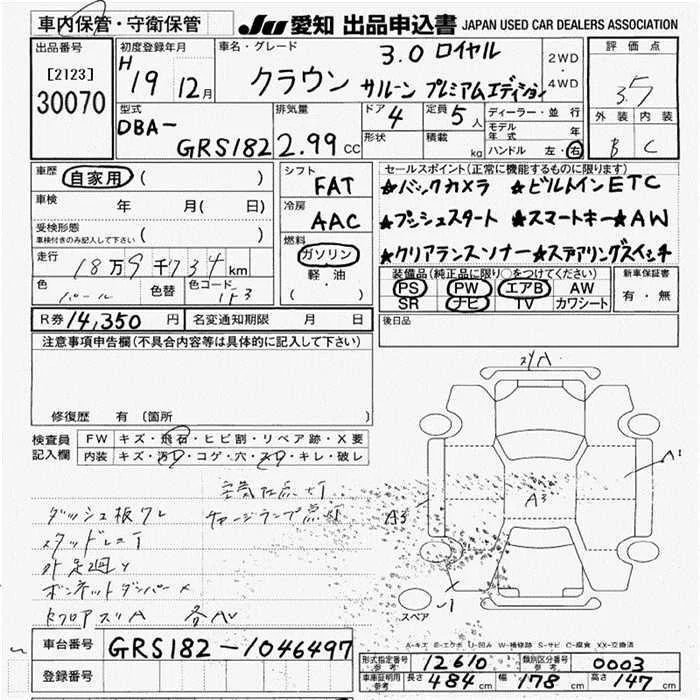 車内保管・守衛保管
JU 愛知 出品申込書 JAPAN USED CAR DEALERS ASSOCIATION
出品番号
[2123]
30070
初度登録年月
H 19 12月
車名・グレード
3.0 ロイヤル
クラウン サルーン プレミアムエディション
2WD
・
4WD
評価点
3.5
外装 内装
B C
型式
DBA-
GRS182
排気量
2.99 CC
ドア 4
形状
定員 5人
積載 kg
ディーラー・並行
モデル年式 年
ハンドル 左・右
車歴 自家用 ( )
車検 年 月( 日)
受検形態
車検付きのみ記入して下さい ( )
走行 18万9千734km
色 パール 色替 色コード 1F3
シフト
FAT
冷房
AAC
燃料
ガソリン
軽油
( )
セールスポイント(正常に機能するものに限ります)
★バックカメラ ★ビルトインETC
★プッシュスタート ★スマートキー★AW
★クリアランスソナー★ステアリングスイッチ
装備品(純正品に限り○をつけてください)
PS PW エアB AW
SR ナビ TV カワシート
新車保証書
有・無
R券 14,350 円 名変通知期限 月 日
後日品
注意事項申告欄(不具合内容等は具体的に記入して下さい)
修復歴 有 〔箇所
検査員記入欄
FW キズ・飛石・ヒビ割・リペア跡・X要
内装 キズ・汚レ・コゲ・穴・スレ・キレ・破レ
ダッシュ板ワレ チャージランプ点灯
ボンネットダンパー×
各AU
A3
A3
A1
スペア
A-キズ E-エクボ U-凹み W-補修跡 S-サビ C-腐食 XX-交換済
車台番号 GRS182-1046497
登録番号
形式指定番号 参考 12610 類別区分番号 参考 0003
車庫証明用 参考 長さ 484cm 幅 178cm 高さ 147cm